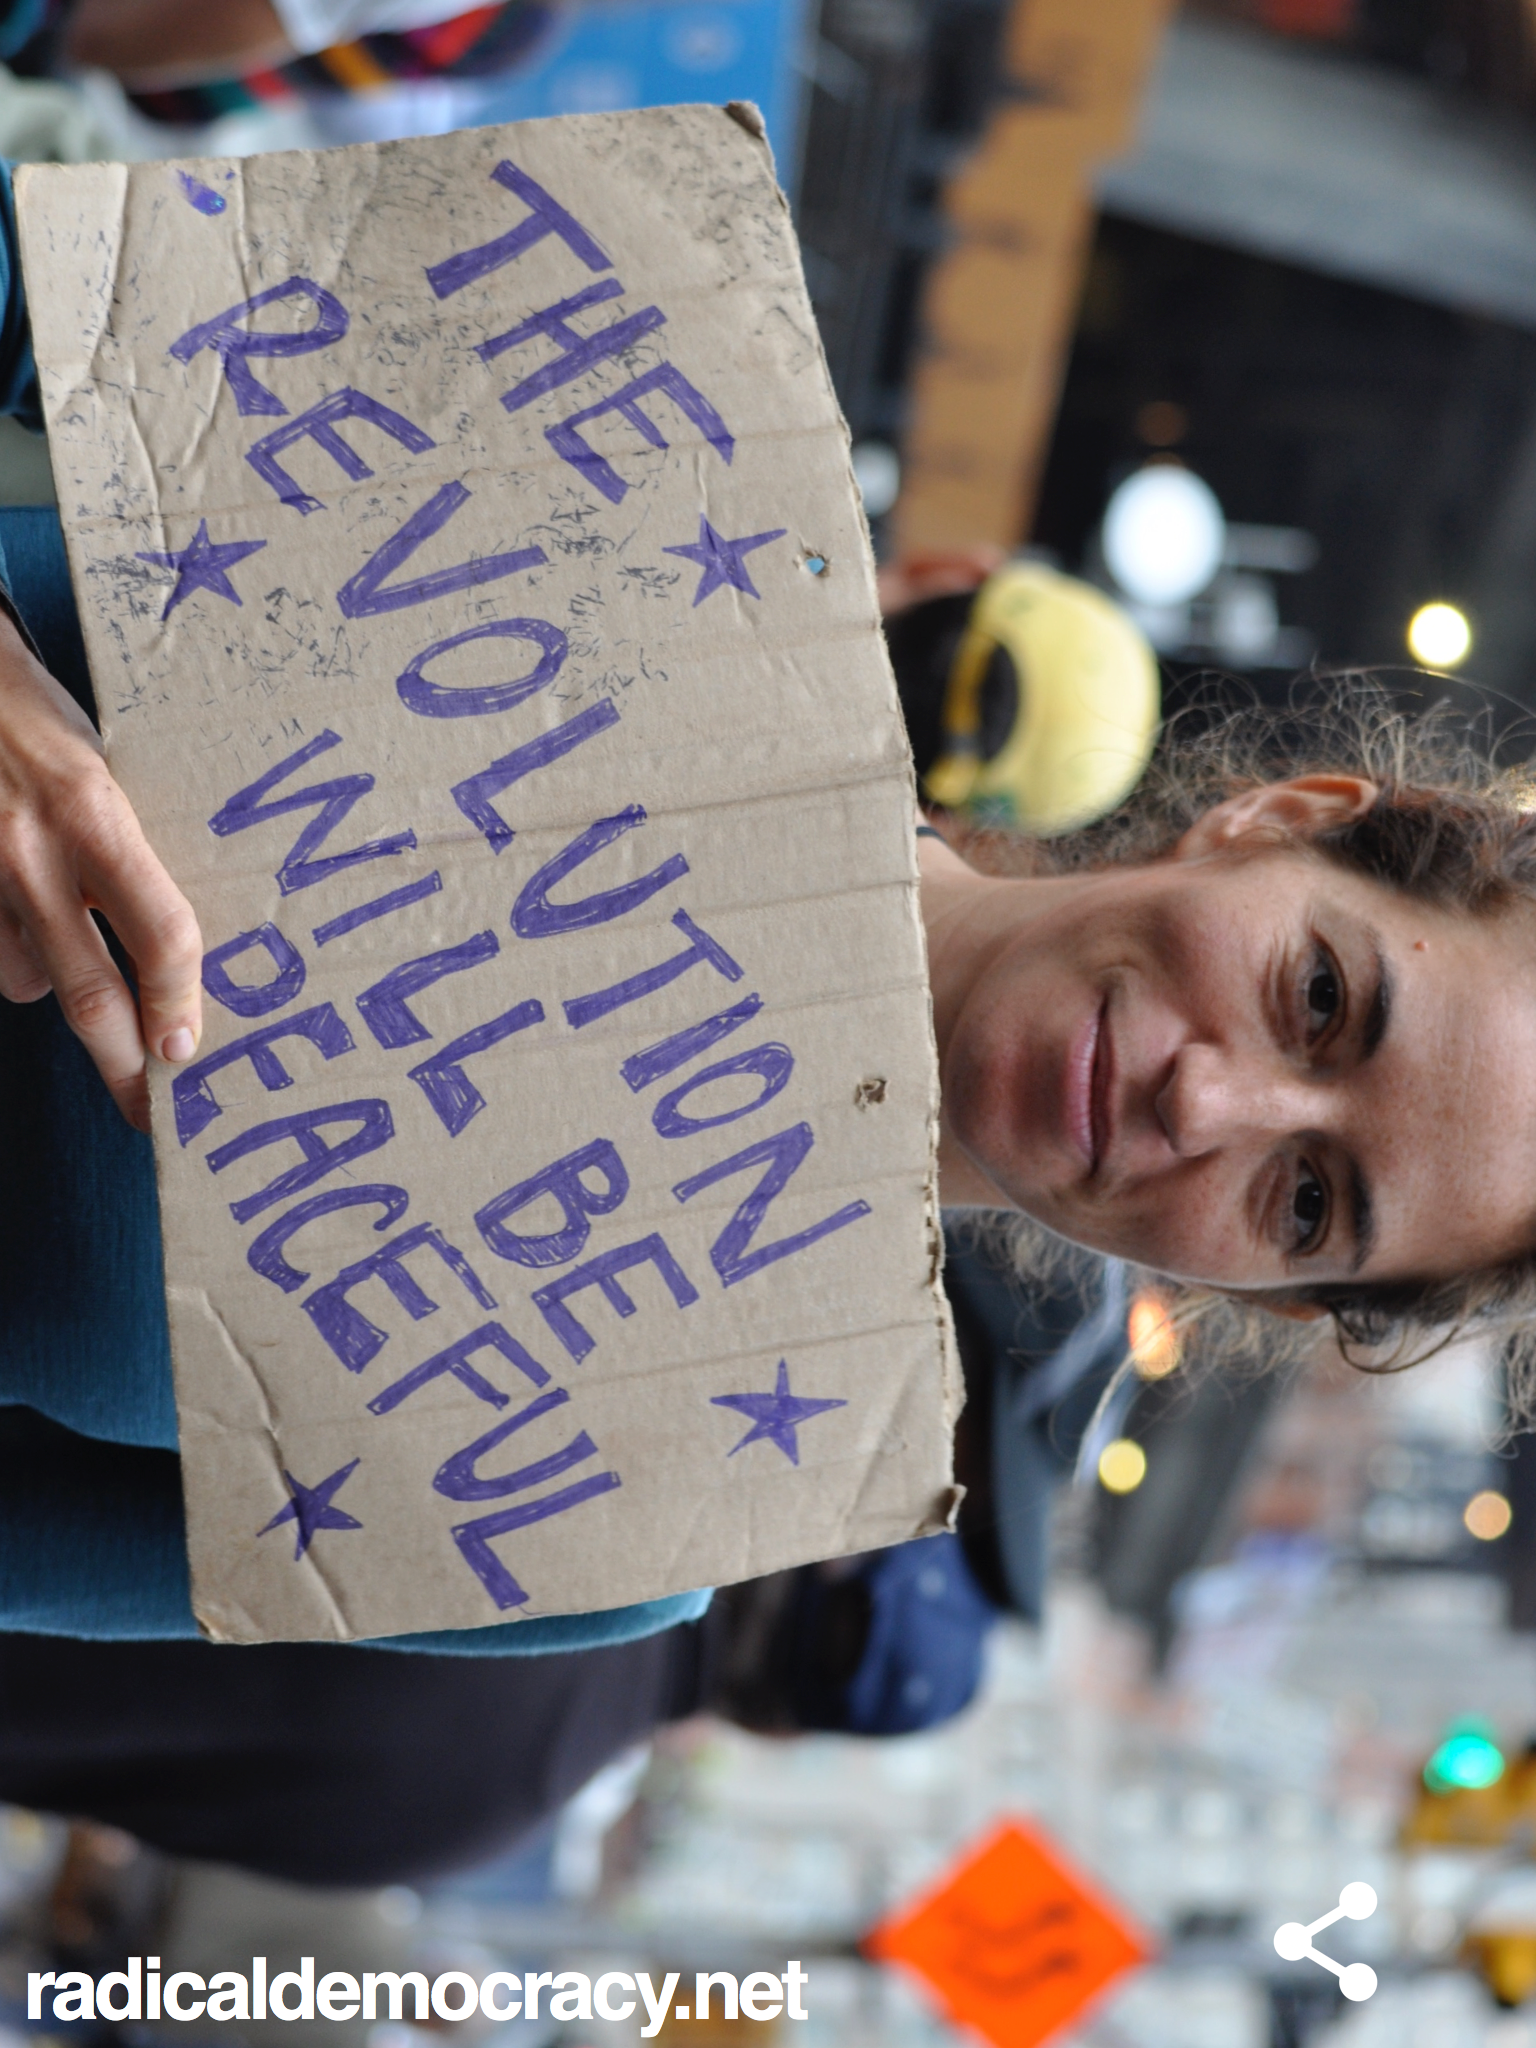 THE
REVOLUTION
WILL BE
PEACEFUL
radicaldemocracy.net